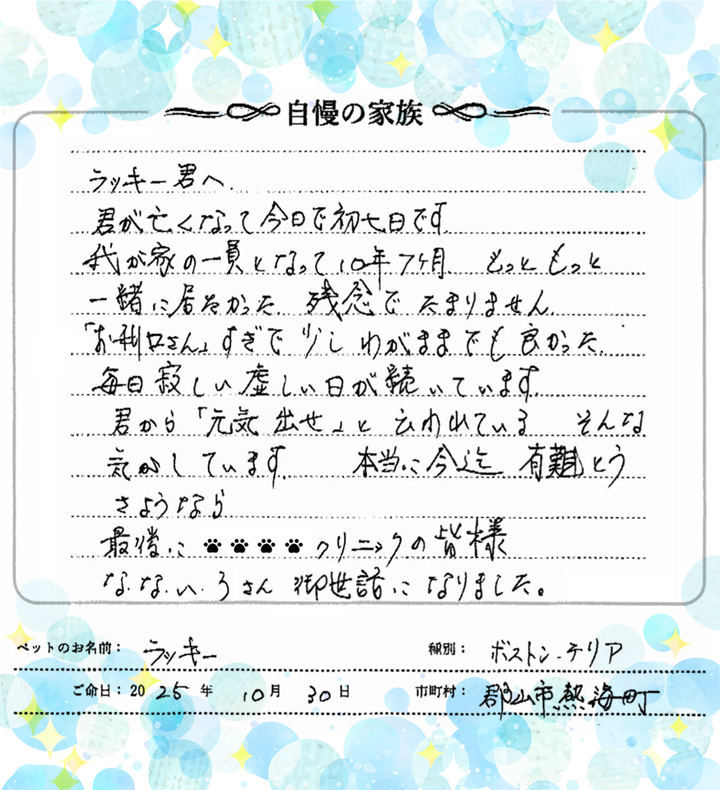 自慢の家族
ラッキー君へ
君が亡くなって今日で初七日です
我が家の一員となって10年7ヶ月 もっと もっと
一緒に居たかった 残念で たまりません
「お利口さん」すぎで 少し わがままでも 良かった
毎日寂しい虚しい日が続いています
君から「元気 出せ」と 云われている そんな
気がしています 本当に今迄 有難とう
さようなら
最後に クリニックの皆様
な.な.い.ろさん 御世話になりました。
ペットのお名前： ラッキー 種別： ボストン・テリア
ご命日：2025年 10月 30日 市町村： 郡山市熱海町